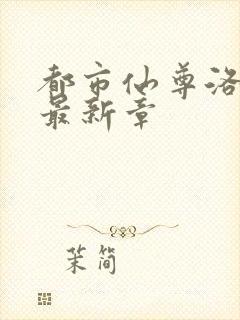 都市仙尊洛
最新章
茉简